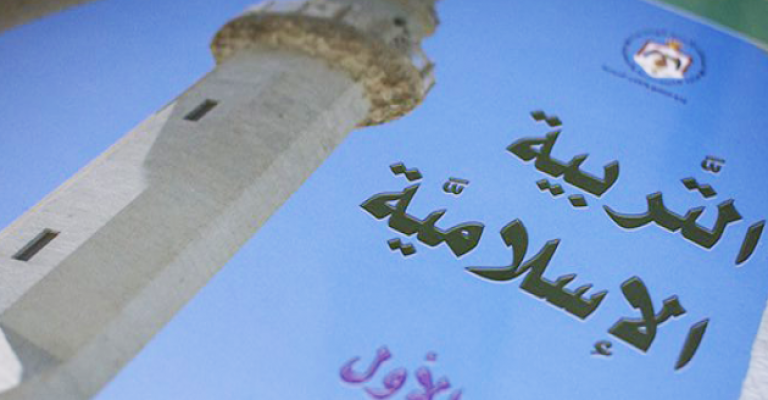 التَّربية
الإسلاميَّة
الأول